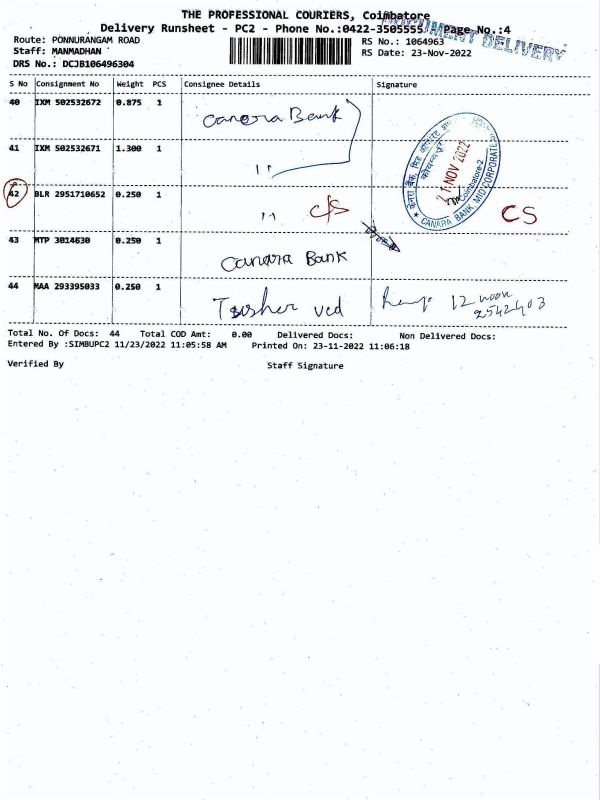 THE PROFESSIONAL COURIERS, Coimbatore
Delivery Runsheet - PC2 - Phone No.:0422-3505555 Page No.:4
DOCUMENT DELIVERY
Route: PONNURANGAM ROAD
RS No.: 1064963
Staff: MANMADHAN
RS Date: 23-Nov-2022
DRS No.: DCJB106496304
S No Consignment No Weight PCS Consignee Details Signature
40 IXM 502532672 0.875 1 Canara Bank
41 IXM 502532671 1.300 1 ''
NOV 2022
Coimbatore-2
CANARA BANK, MID CORPORATE
42 BLR 2951710652 0.250 1 '' C/S CS
43 MTP 3014630 0.250 1 Canara Bank
44 MAA 293395033 0.250 1 ved 12 noon
Total No. Of Docs: 44 Total COD Amt: 0.00 Delivered Docs: Non Delivered Docs:
Entered By :SIMBUPC2 11/23/2022 11:05:58 AM Printed On: 23-11-2022 11:06:18
Verified By Staff Signature